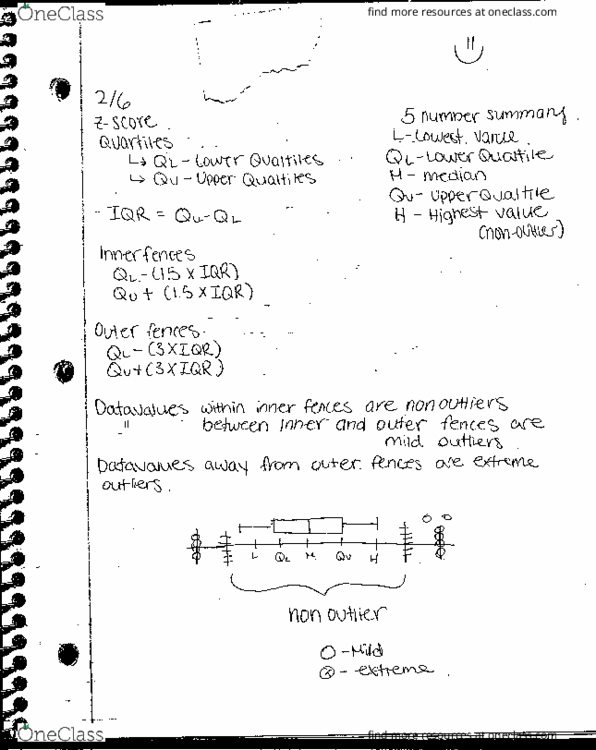 OneClass
find more resources at oneclass.com
2/6
z-score
Quartiles
↳ QL - Lower Qualtiles
↳ QU - Upper Qualtiles
- IQR = QU - QL
5 number summary
L - Lowest value
QL - Lower Quartile
M - median
QU - Upper Qualtile
H - Highest value
(non-outlier)
Inner fences
QL - (1.5 X IQR)
QU + (1.5 X IQR)
Outer fences
QL - (3 X IQR)
QU + (3 X IQR)
Datavalues within inner fences are non outliers
" between inner and outer fences are
mild outliers
Datavalues away from outer fences are extreme
outliers.
L QL M QU H
non outlier
O - Mild
⊗ - extreme
OneClass
find more resources at oneclass.com